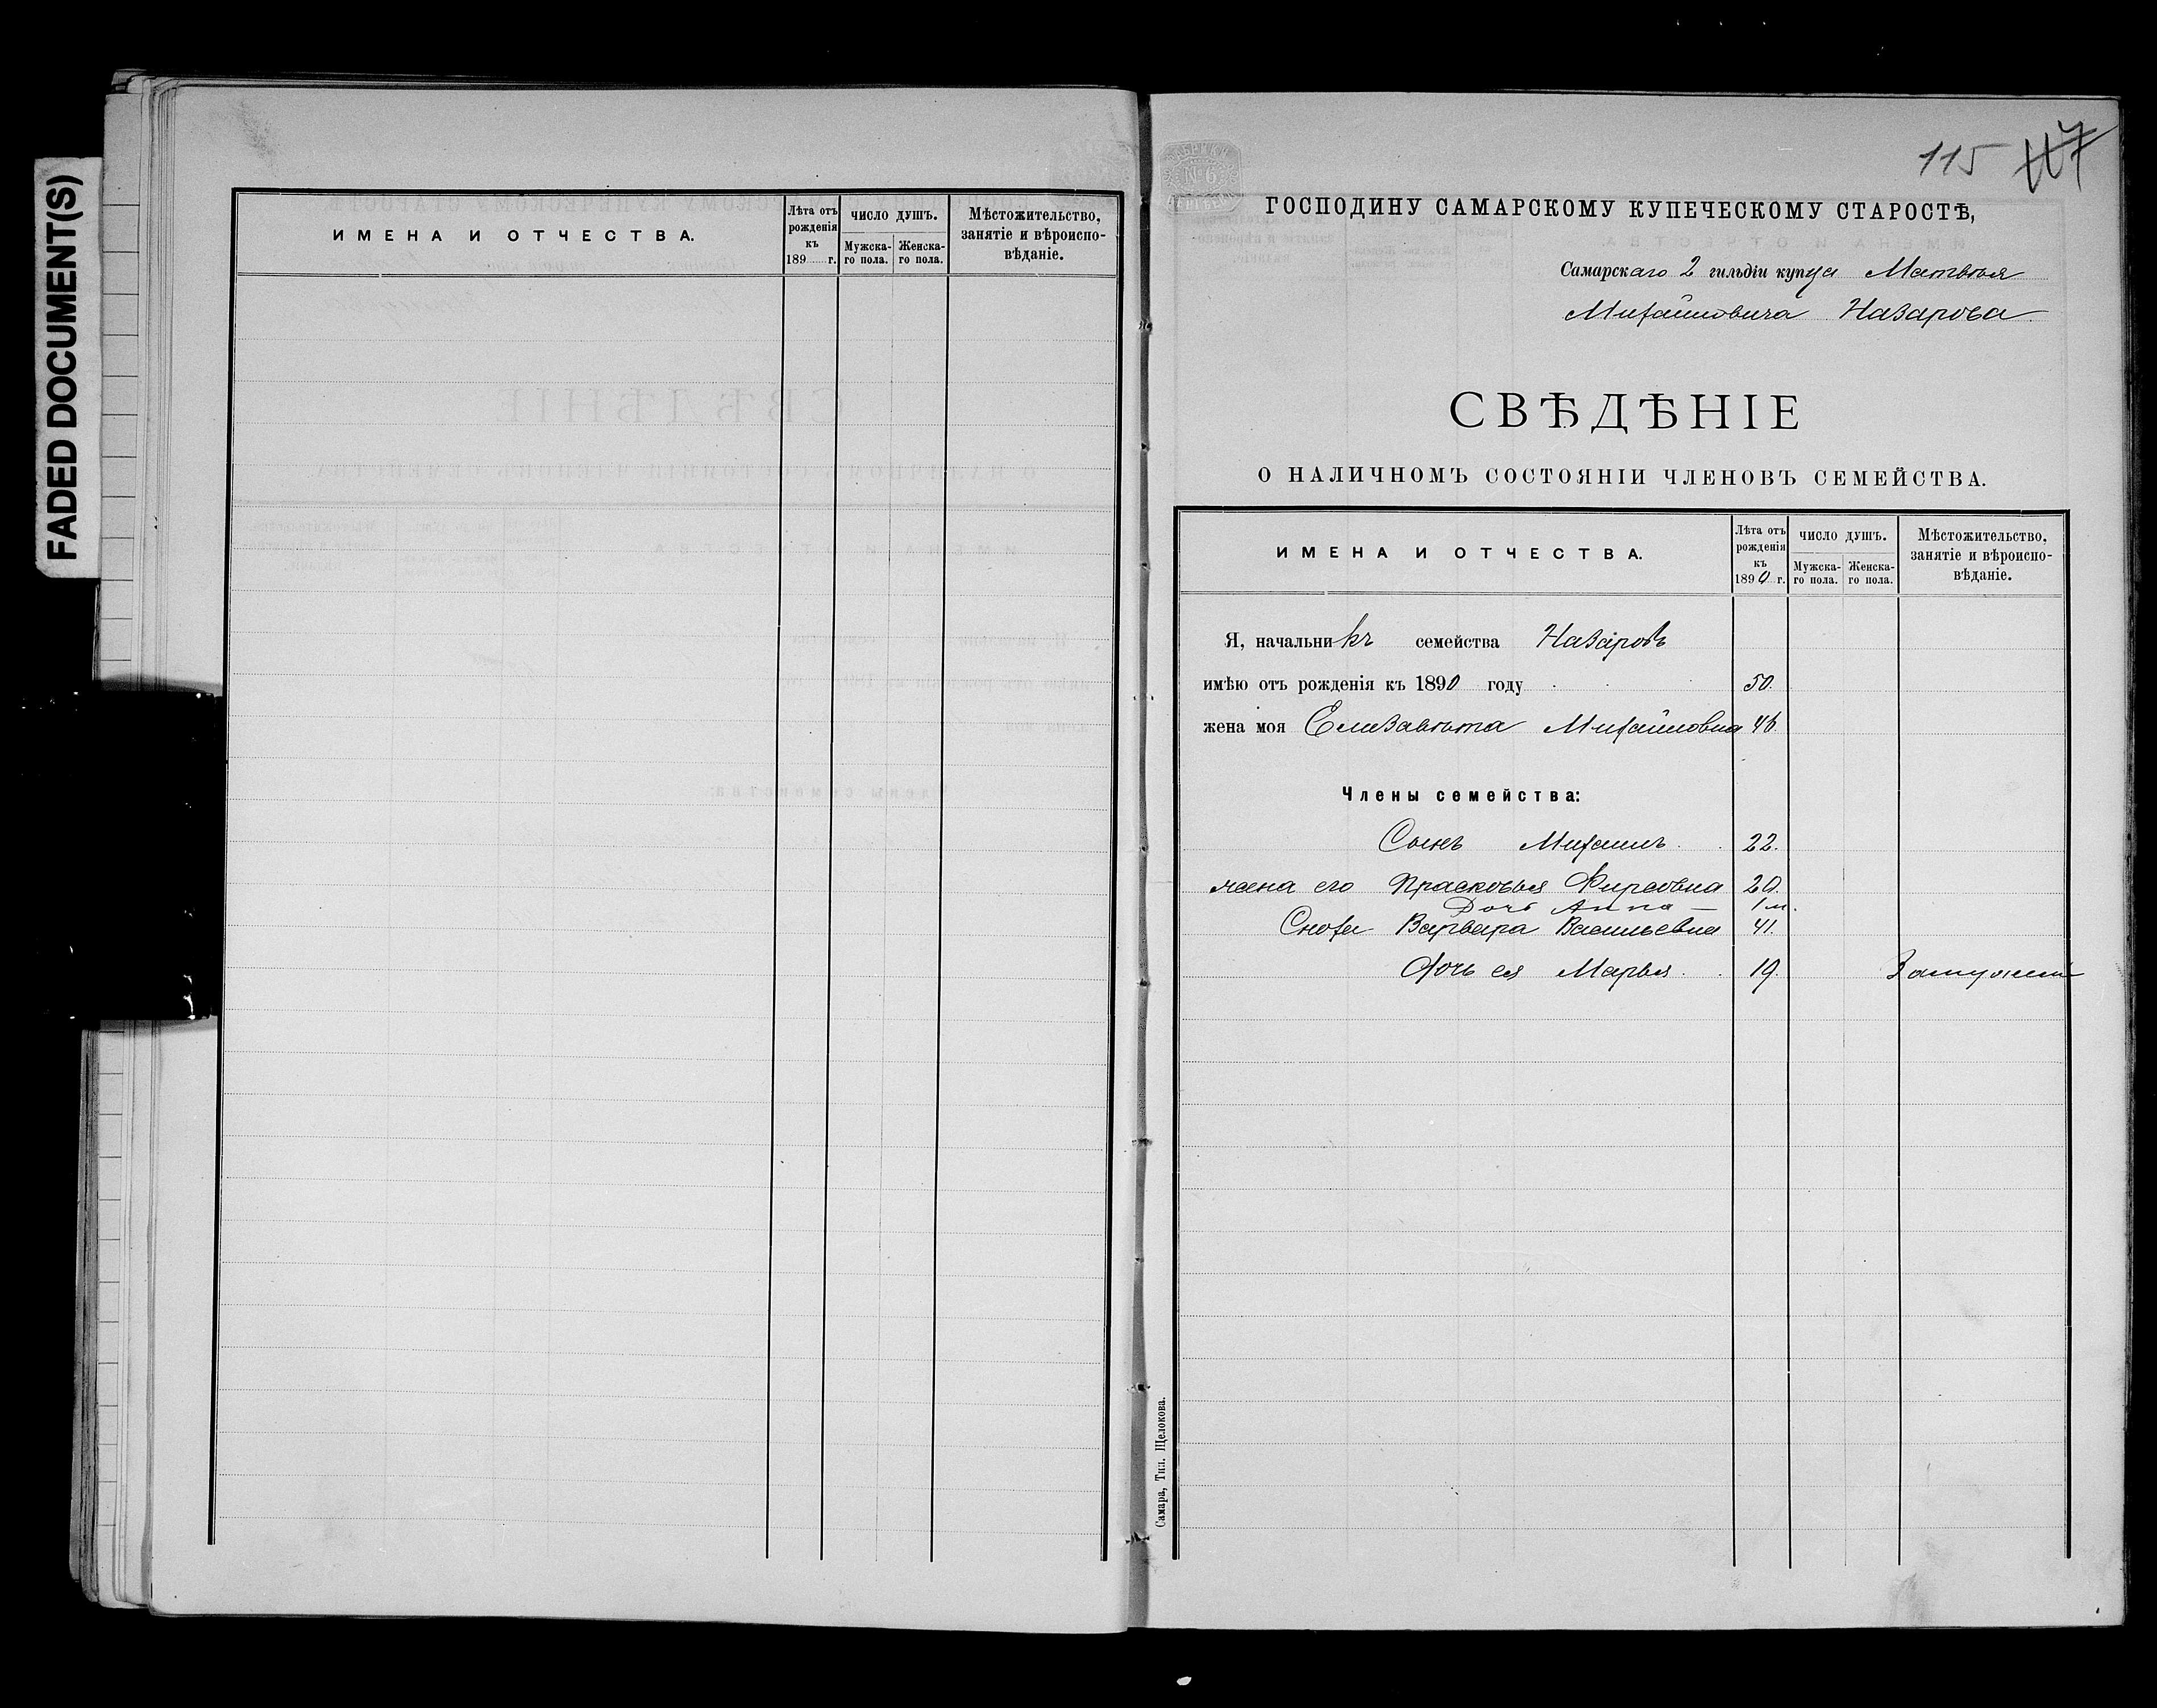 FADED DOCUMENT(S)
ИМЕНА И ОТЧЕСТВА.
Лѣта отъ рожденія къ 189 г.
ЧИСЛО ДУШЪ.
Мужска-го пола.
Женска-го пола.
Мѣстожительство, занятіе и вѣроиспо-вѣданіе.
115 117
ФАБРИКИ №6
ГОСПОДИНУ САМАРСКОМУ КУПЕЧЕСКОМУ СТАРОСТѢ,
Самарскаго 2 гильдіи купца Матвѣя
Михайловича Назарова
СВѢДѢНІЕ
О НАЛИЧНОМЪ СОСТОЯНІИ ЧЛЕНОВЪ СЕМЕЙСТВА.
ИМЕНА И ОТЧЕСТВА.
Лѣта отъ рожденія къ 1890 г.
ЧИСЛО ДУШЪ.
Мужска-го пола.
Женска-го пола.
Мѣстожительство, занятіе и вѣроиспо-вѣданіе.
Я, начальникъ семейства Назаровъ
имѣю отъ рожденія къ 1890 году 50.
жена моя Елизавѣта Михайловна 46
Члены семейства:
Сынъ Михаилъ. 22.
жена его Прасковья Фирсовна 20.
Дочь Анна — 1 м.
Сноха Варвара Васильевна 41.
Дочь ея Марья. 19. Замужемъ
Самара, Тип. Щелокова.